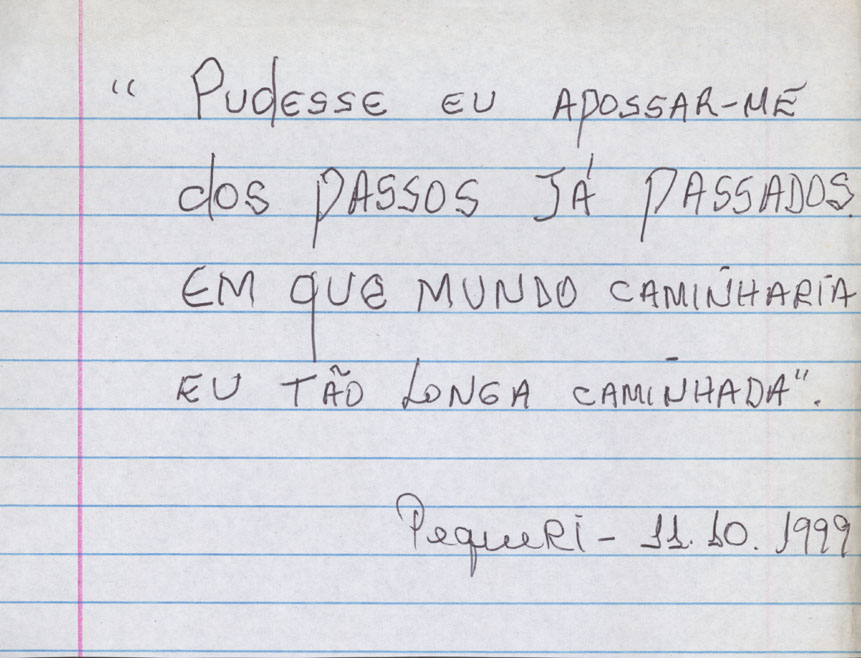 “ PUdESSE EU APOSSAR-ME
dos PASSOS JÁ PASSADOS.
EM QUE MUNDO CAMINHARIA
EU TÃO LONGA CAMINHADA”.
Pequeri - 11.10.1999